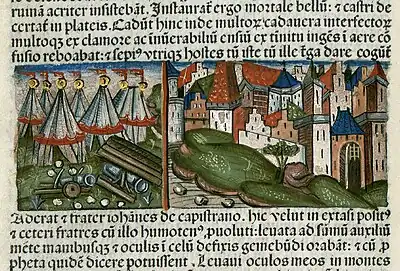 ruinā acriter insistebāt. Instaurat̄ ergo mortale bellū: ⁊ castri de
certāt in plateis. Cadūt hinc inde multoꝝ cadauera interfectoꝝ
multoqꝫ ex clamore ac
fusio reboabat: ⁊ utriqꝫ hostes tū iste tū ille t̄ga dare cogūt̄
Aderat ⁊ frater iohānes de capistrano. hic velut in extasi positꝰ
⁊ ceteri fratres cū illo humotenꝰ puoluti: leuata ad sūmū auxiliū
mēte manibusqꝫ ⁊ oculis ī celū defixis gemebūdi orabāt: ⁊ cū ꝓ
pheta quidē dicere potuissent. Leuaui oculos meos in montes